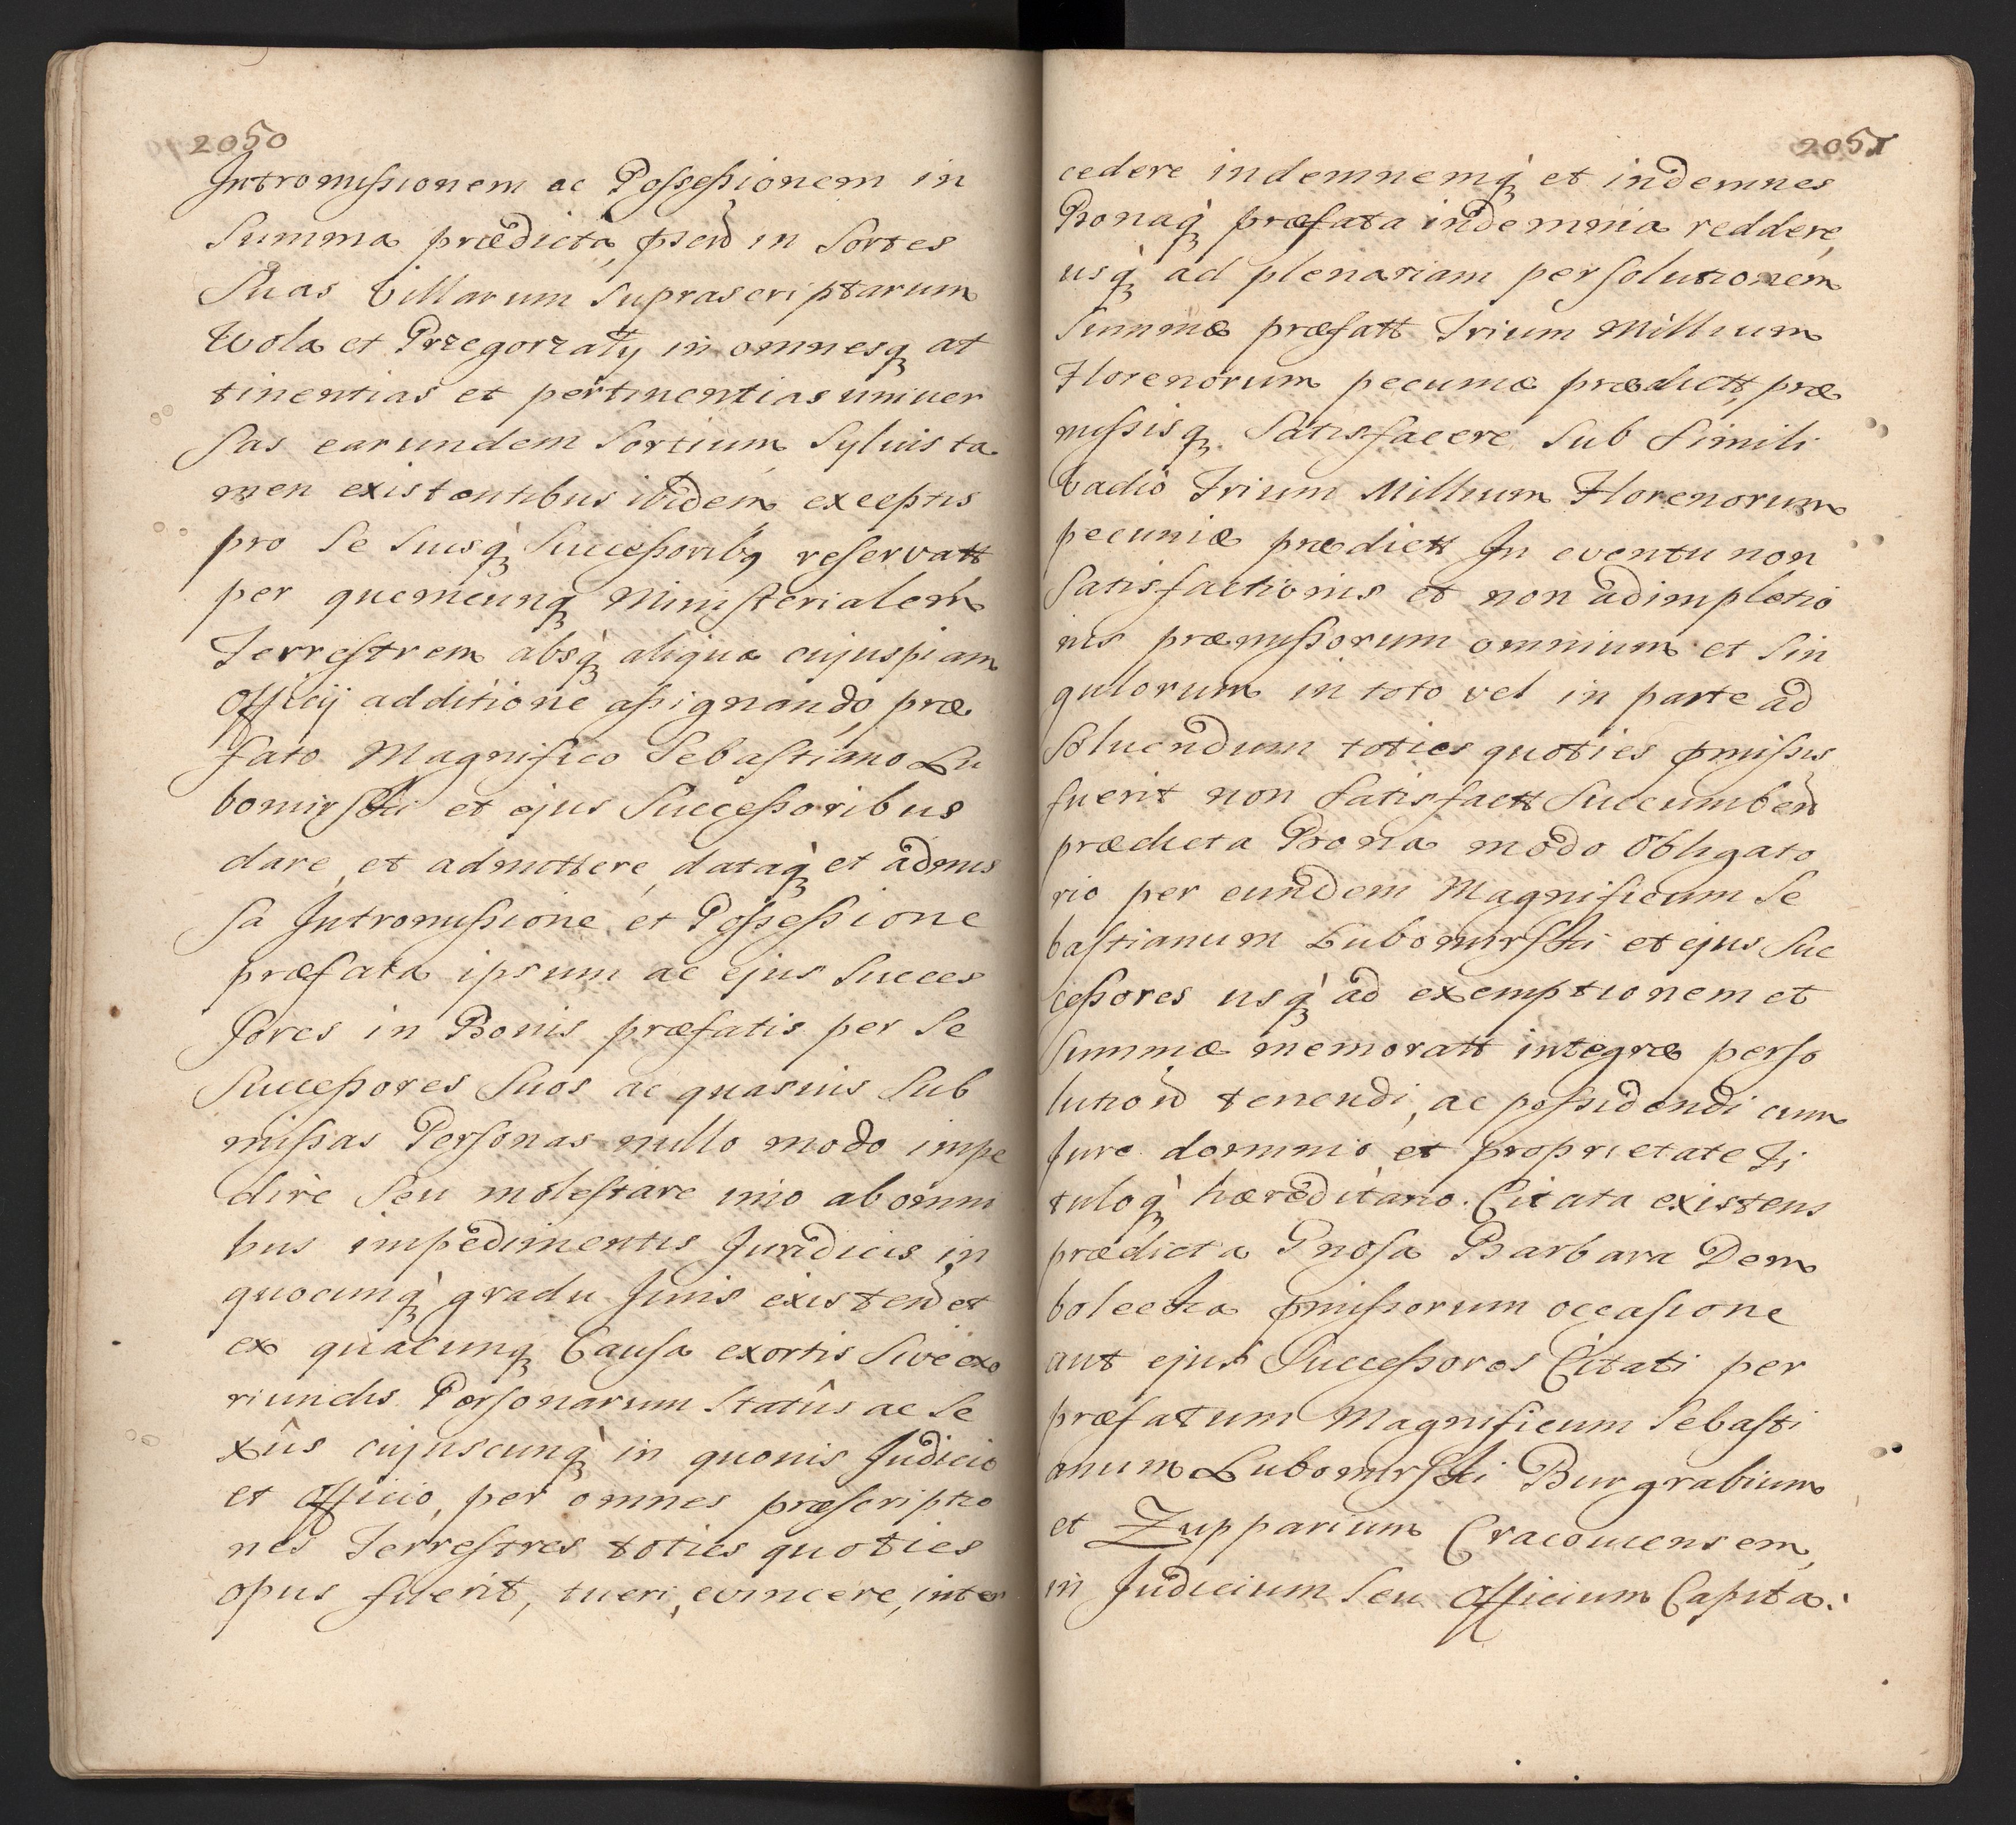 2050
Intromissionem ac Possessionem in
Summa prædictâ, pñd in Sortes
Suas Villarum Suprascriptarum
Wola et Przegorzały in omnesq́ at
tinentias et pertinentias univer
sas earundem Sortium Sylvis ta
men existentibus ibidem exceptis
pro Se Suisq́ Successoribq reservatt
per quemcunq́ Ministerialem
Terrestrem absq́ aliqua cujuspiam
Officij additione assignando, præ
fato Magnifico Sebastiano Lu
bomirski et ejus Successoribus
dare, et admittere, dataq́ et admis
sa Intromissione et Possessione
præfata ipsum ac ejus Succes
sores in Bonis præfatis per Se
Successores Suos ac quasvis Sub
missas Personas nullo modo impe
dire Seu molestare imo ab omni
bus impedimentis Juridicis in
quocunq́ gradu Juris existend et
ex quacunq́ Causa exortis Sive exo
riundis Personarum Statûs ac Se
xûs cujuscunq́ in quovis Judicio
et Officio, per omnes præscriptio
nes Terrestres toties quoties
opus fuerit, tueri, evincere, inter
2051
cedere indemnemq́ et indemnes
Bonaq́ præfata indemnia reddere,
usq́ ad plenariam persolutionem
Summæ præfatt Trium Millium
Florenorum pecuniæ prædictt, præ
missisq́ Satisfacere Sub Simili
Vadio Trium Millium Florenorum
pecuniæ prædictt In eventu non
Satisfactionis et non adimpletio
nis præmissorum omnium et Sin
gulorum in toto vel in parte ad
Solvendum toties quoties pmissis
fuerit non Satisfactt Succumbeñ
prædicta Bona modo Obligato
rio per eundem Magnificum Se
bastianum Lubomirski et ejus Suc
cessores usq́ ad exemptionem et
Summæ memoratt integræ perso
lutioñ tenendi, ac possidendi cum
Jure dominio et proprietate Ti
tuloq́ hæreditario. Citata existens
prædicta Gnosa Barbara Dem
bolecka pmissorum occasione
aut ejus Successores Citati per
præfatum Magnificum Sebasti
anum Lubomirski Burgrabium
et Zupparium Cracoviensem,
in Judicium Seu Officium Capita: